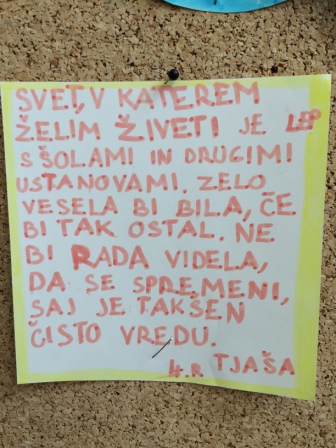 SVET, V KATEREM
ŽELIM ŽIVETI JE LEP
S ŠOLAMI IN DRUGIMI
USTANOVAMI. ZELO
VESELA BI BILA, ČE
BI TAK OSTAL. NE
BI RADA VIDELA,
DA SE SPREMENI,
SAJ JE TAKŠEN
ČISTO VREDU.
4.R TJAŠA